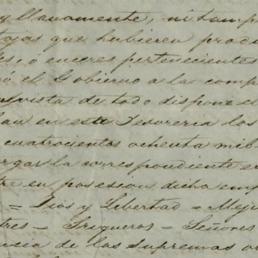 y llanamente, ni tamp
ojas que hubieren prod
s, ó enceres pertenecientes
ó el Gobierno a la comp
vista de todo dispone el
en esta Tesoreria los
cuatrocientos ochenta mil
rgar la correspondiente e
en posesion dicha emp
= Dios y Libertad = Meji
tres = Trigueros = Señores
ncia de las supremas or